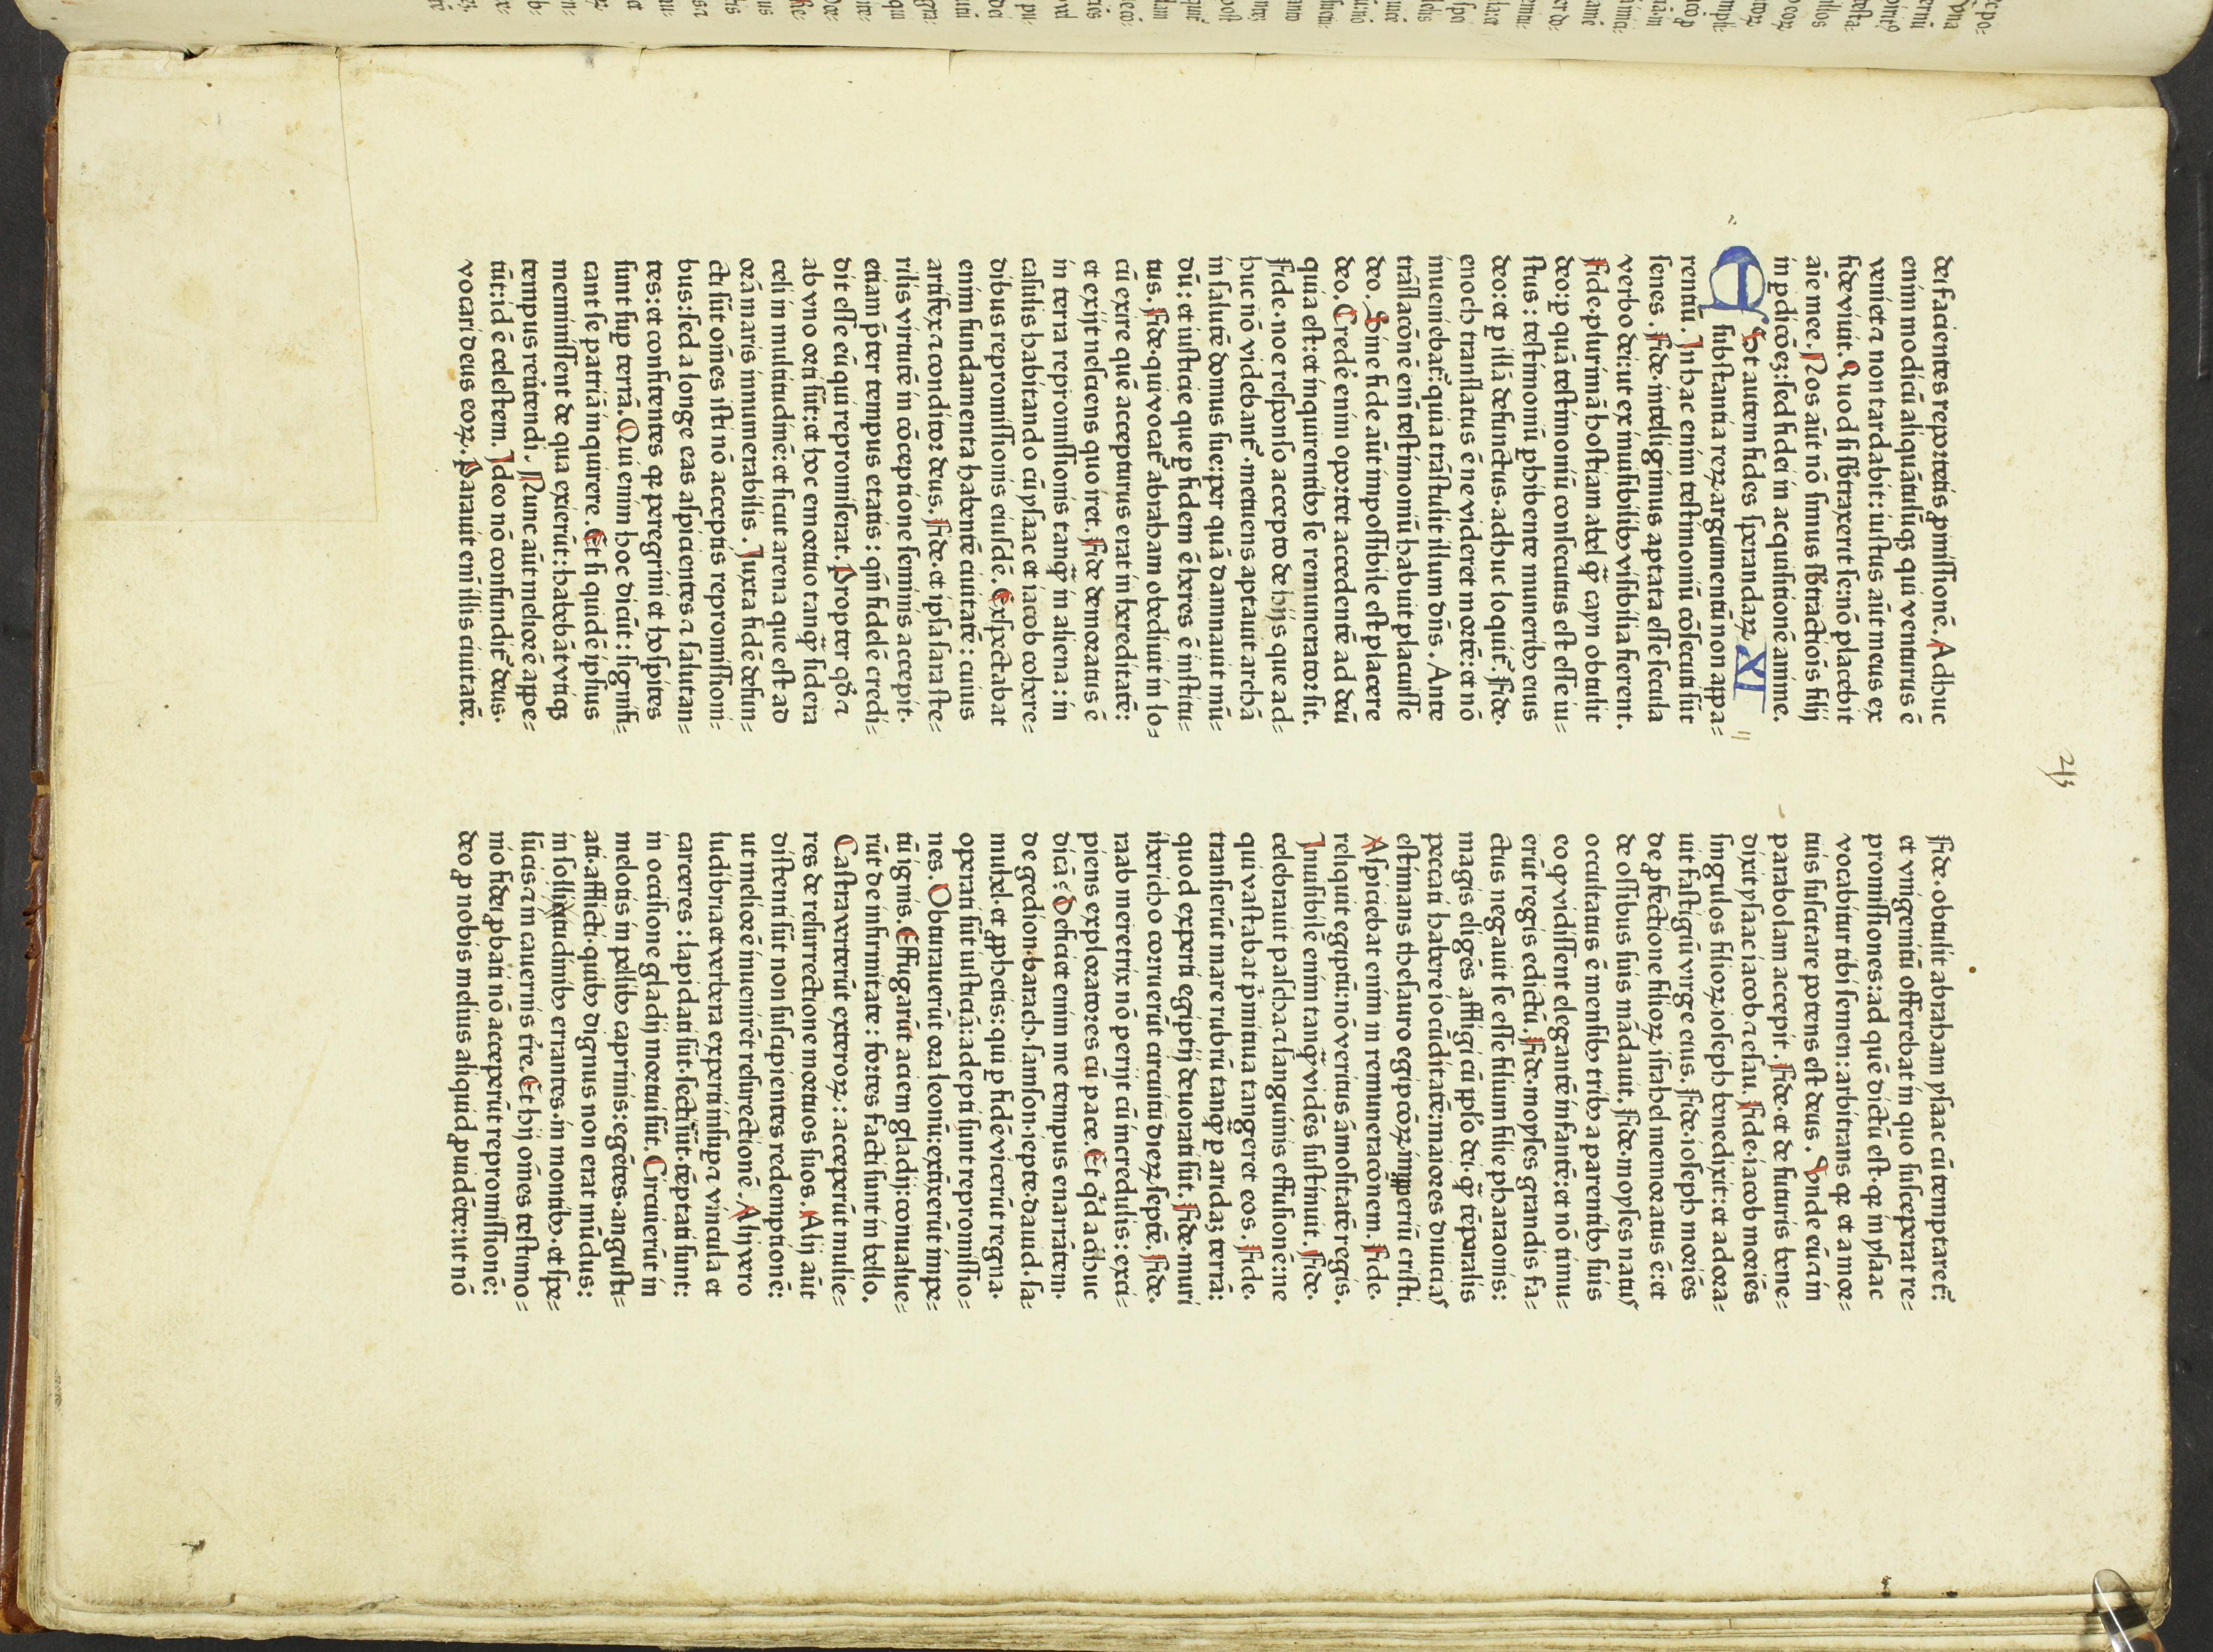 213
dei facientes reportetis ꝓmissionē. Adhuc
enim modicū aliquātulūqꝫ qui venturus ē
veniet ⁊ non tardabit: iustus aūt meus ex
fide viuit. Quod si sb̄traxerit se: nō placebit
aīe mee. Nos aūt nō sumus sb̄tractiōis filij
in ꝑdicōeꝫ: sed fidei in acquisitionē anime.
Est autem fides sperandaꝝ XI
substantia reꝝ. argumentū non appa⸗
rentiu. In hac enim testimoniū cōsecuti sūt
senes. Fide. intelligimus aptata esse secula
verbo dei: ut ex inuisibilibꝫ visibilia fierent.
Fide. plurimā hostiam abel qͣ̄ cayn obtulit
deo: ꝑ quā testimoniū consecutus est esse iu⸗
stus: testimoniū ꝑhibente muneribꝫ eius
deo: et ꝑ illā defunctus. adhuc loquit᷑. Fide.
enoch translatus ē ne videret mortē: et nō
inueniebat᷑. quia trāstulit illum dn̄s. Ante
trāslacōnē em̄ testimoniū habuit placuisse
deo. Sine fide aūt impossibile est placere
deo. Crede᷑ enim oportet accedentē ad deū
quia est: et inquirentibꝫ se remunerator sit.
Fide. noe responso accepto de hijs que ad⸗
huc nō videbant᷑. metuens aptauit archā
in salutē domus sue: per quā damnauit mū⸗
dū: et iusticie que ꝑ fidem ē heres ē institu⸗
tus. Fide. qui vocat᷑ abraham obediuit in lo⸗
cū exire quē accepturus erat in hereditatē:
et exijt nesciens quo iret. Fide demoratus ē
in terra repromissionis tanqͣ̄ in aliena: in
casulis habitando cū ysaac et iacob cohere⸗
dibus repromissionis eiusdē. Exspectabat
enim fundamenta habentē ciuitatē: cuius
artifex ⁊ conditor deus. Fide. et ipsa sara ste⸗
rilis virtutē in cōceptione seminis accepit.
etiam p̄ter tempus etatis: qm̄ fidelē credi⸗
dit esse eū qui repromiserat. Propter qd̄ ⁊
ab vno orti sūt: et hoc emortuo tanqͣ̄ sidera
celi in multitudinē: et sicut arena que est ad
orā maris innumerabilis. Juxta fidē defun⸗
cti sūt om̄es isti nō acceptis repromissioni⸗
bus: sed a longe eas aspicientes ⁊ salutan⸗
tes: et confitentes qꝛ peregrini et hospites
sunt sup terrā. Qui enim hoc dicūt: signifi⸗
cant se patriā inquirere. Et si quidē ipsius
meminissent de qua exierūt: habebāt vtiqꝫ
tempus reūtendi. Nunc aūt meliorē appe⸗
tūt: id ē celestem. Ideo nō confundit᷑ deus.
vocari deus eoꝝ. Parauit em̄ illis ciuitatē.
Fide. obtulit abraham ysaac cū temptaret᷑:
et vnigenitū offerebat in quo susceperat re⸗
promissiones: ad quē dictū est. qꝛ in ysaac
vocabitur tibi semen: arbitrans qꝛ et a mor⸗
tuis suscitare potens est deus. Unde eū ⁊ in
parabolam accepit. Fide. et de futuris bene⸗
dixit ysaac iacob ⁊ esau. Fide. iacob moriēs
singulos filioꝝ ioseph benedixit: et adora⸗
uit fastigiū virge eius. Fide. ioseph moriēs
de ꝓfectione filioꝝ israhel memoratus ē: et
de ossibus suis mādauit. Fide. moyses natus
occultatus ē mensibꝫ tribꝫ a parentibꝫ suis
eo ꝙ vidissent elegantē infantē: et nō timu⸗
erūt regis edictū. Fide. moyses grandis fa⸗
ctus negauit se esse filium filie pharaonis:
magis eligēs affligi cū ꝓplo dei. qͣ̄ tēporalis
peccati habere iocūditatē: maiores diuicias
estimans thesauro egipcōꝝ. imꝓperiū cristi.
Aspiciebat enim in remuneracōnem. Fide.
reliquit egiptū: nō veritus āmositatē regis.
Inuisibilē enim tanqͣ̄ vidēs sustinuit. Fide.
celebrauit pascha ⁊ sanguinis effusionē: ne
qui vastabat pͥmitiua tangeret eos. Fide.
transierūt mare rubrū tanqͣ̄ ꝑ aridaꝫ terrā:
quod experti egiptij deuorati sūt. Fide. muri
ihericho corruerūt circuitu dieꝝ septē. Fide.
raab meretrix nō perijt cū incredulis: exci⸗
piens exploratores cū pace. Et qͥd adhuc
dicā? Deficiet enim me tempus enarrātem.
de gedion. barach. samson. iepte. dauid. sa⸗
muhel. et ꝓphetis: qui ꝑ fidē vicerūt regna.
operati sūt iusticiā: adepti sunt repromissio⸗
nes. Obturauerūt ora leonū: extīxerūt impe⸗
tū ignis. Effugarūt aciem gladij: conualue⸗
rūt de infirmitate: fortes facti sunt in bello.
Castra verterūt exteroꝝ: acceperūt mulie⸗
res de resurrectione mortuos suos. Alij aūt
distenti sūt non suscipientes redemptionē:
ut meliorē inuenirēt resurectionē. Alij vero
ludibria et verbera experti insuꝑ ⁊ vincula et
carceres: lapidati sūt. secti sūt. tēptati sunt:
in occisione gladij mortui sūt. Circuierūt in
melotis in pellibꝫ caprinis: egētes. angusti⸗
ati. afflicti. quibꝫ dignus non erat mūdus:
in sollitudinibꝫ errantes. in montibꝫ. et spe⸗
lūcis ⁊ in cauernis tr̄e. Et hij om̄es testimo⸗
nio fidei ꝓbati nō acceperūt repromissionē:
deo ꝓ nobis melius aliquid ꝓuidēte: ut nō